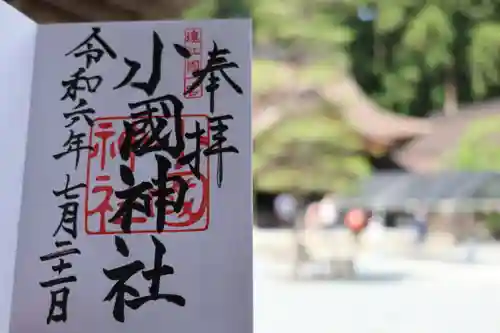 奉拝
遠江国一宮
小國神社
小國神社
令和六年七月二十一日